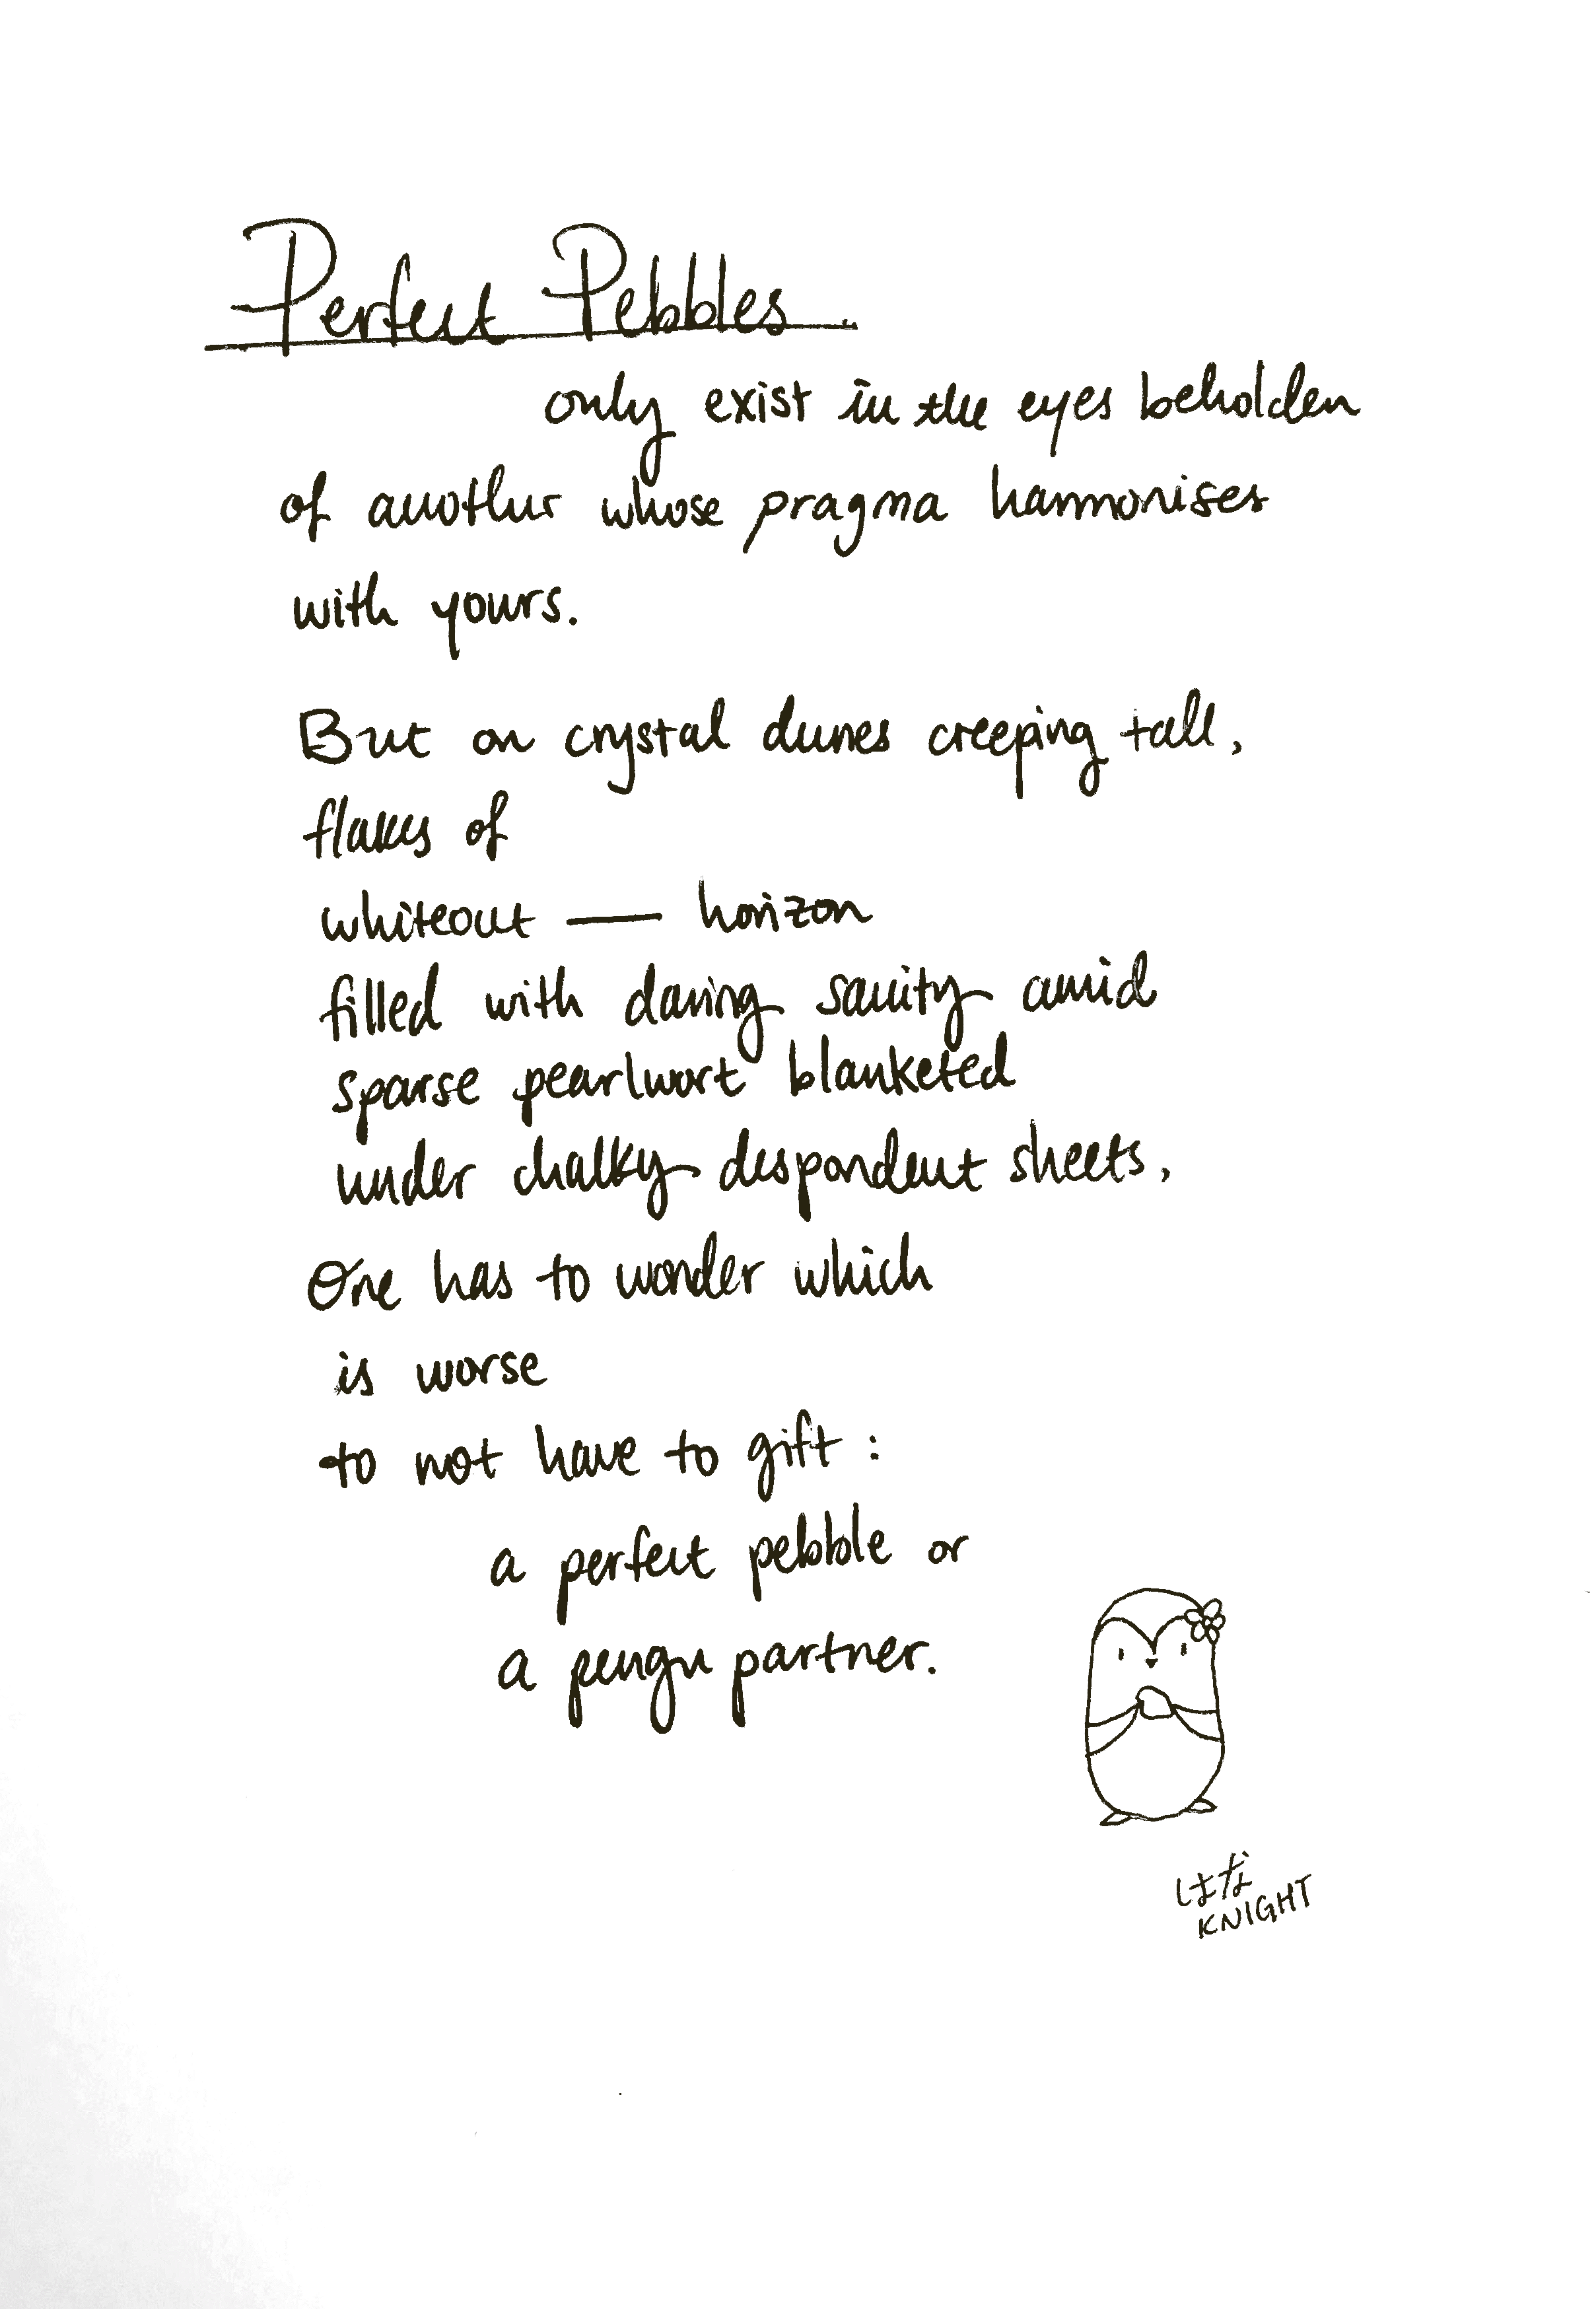 Perfect Pebbles.
only exist in the eyes beholden
of another whose pragma harmonises
with yours.
But on crystal dunes creeping tall,
flakes of
whiteout — horizon
filled with daring sanity amid
sparse pearlwort blanketed
under chalky despondent sheets,
One has to wonder which
is worse
to not have to gift :
a perfect pebble or
a pengu partner.
はな
KNIGHT